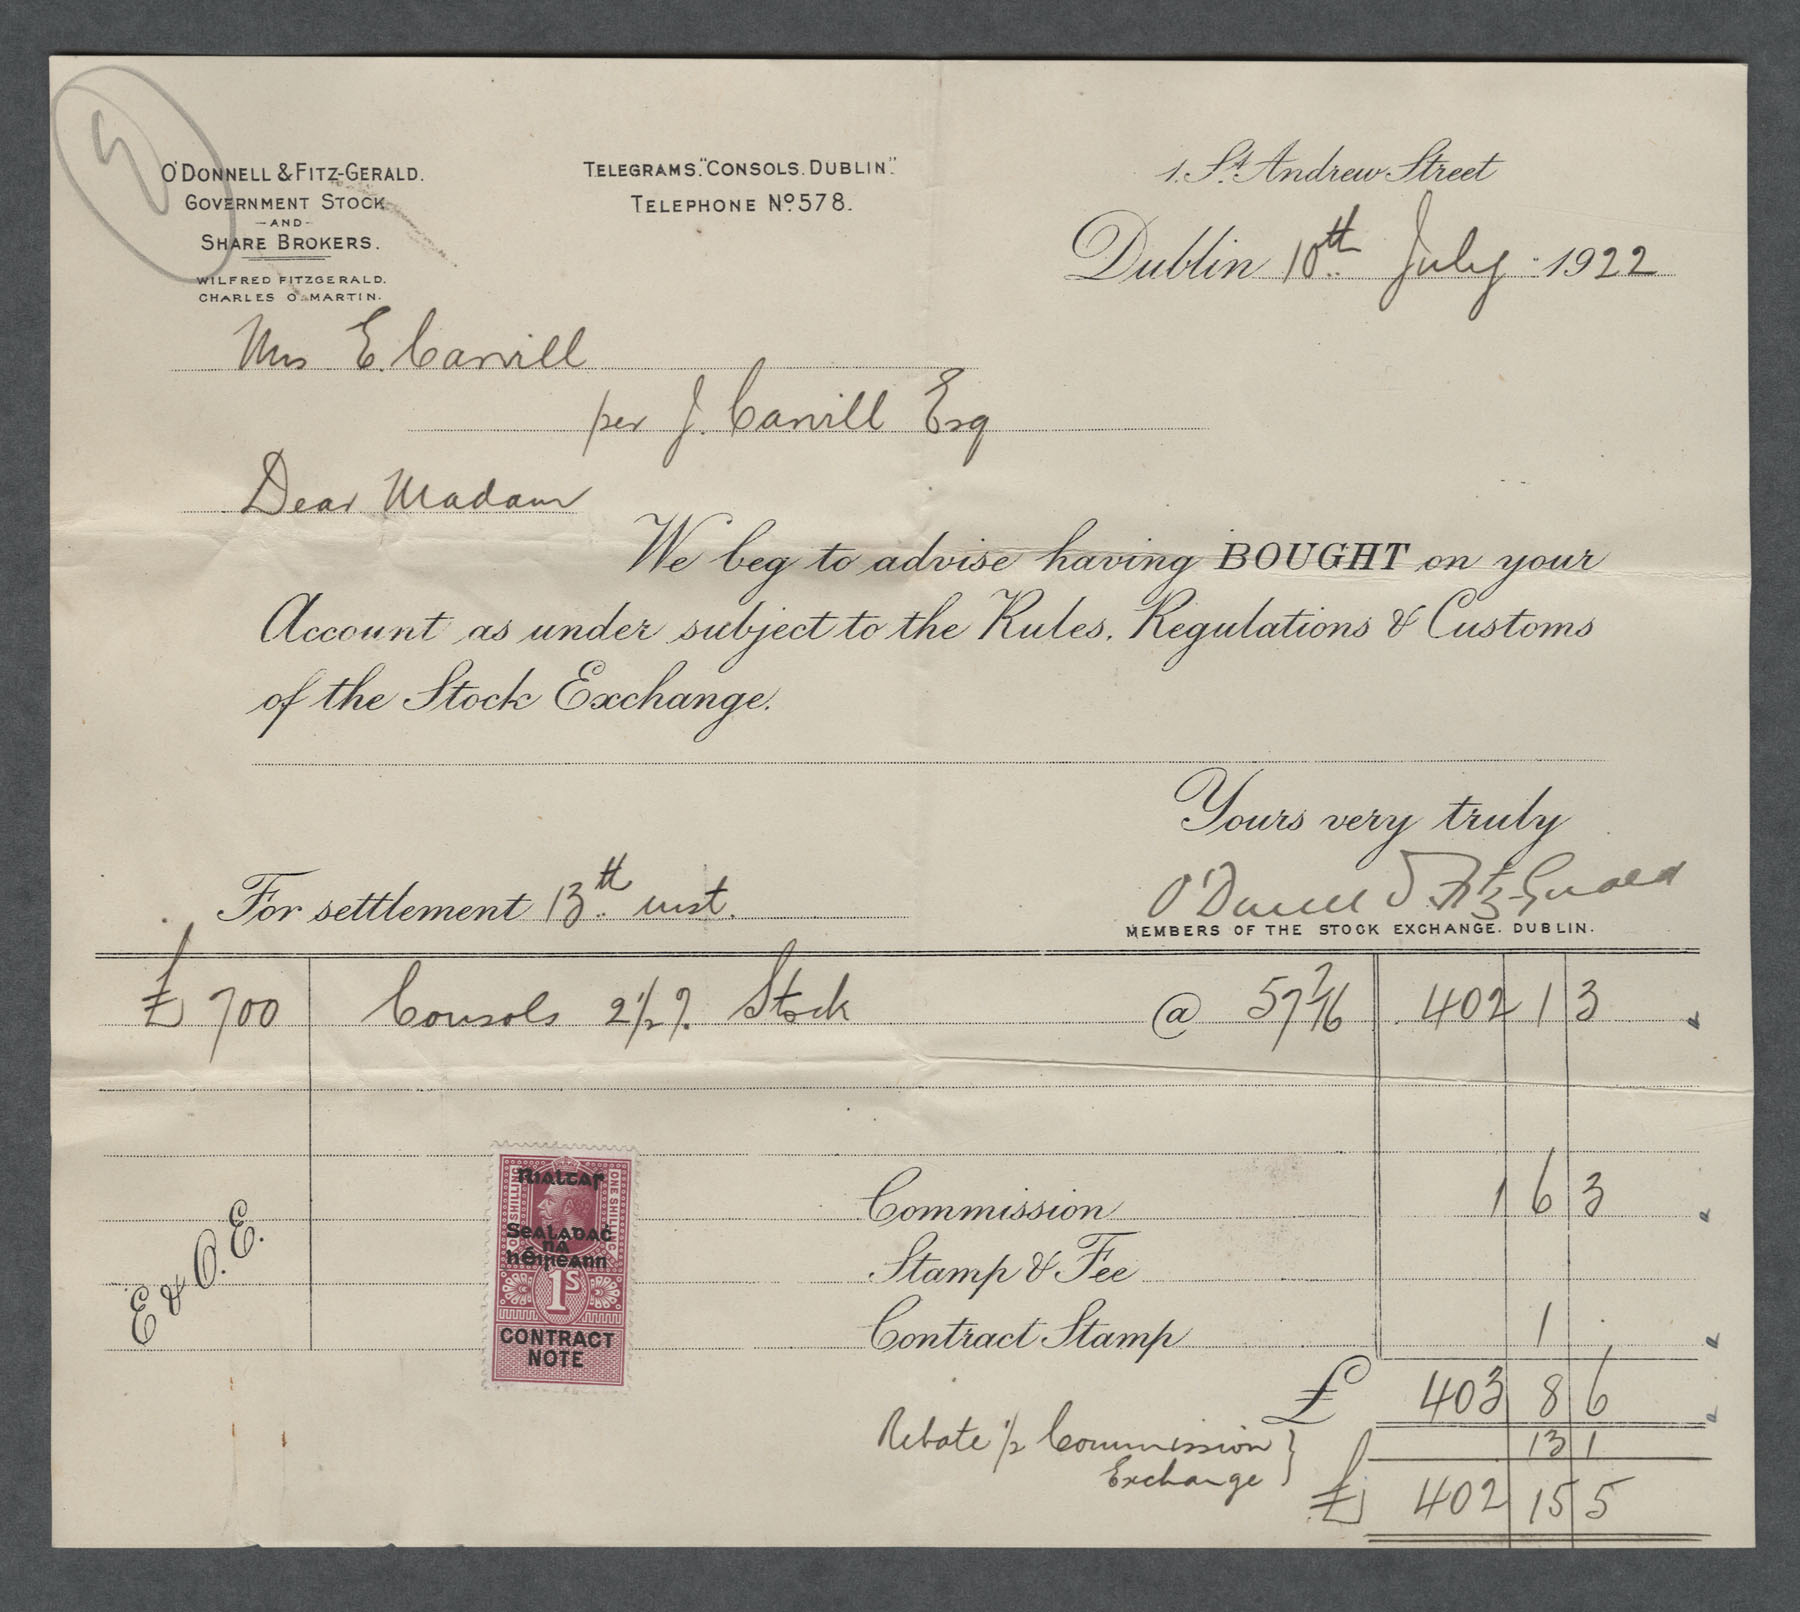 O'DONNELL & FITZ-GERALD.
GOVERNMENT STOCK
-AND-
SHARE BROKERS.
WILFRED FITZGERALD.
CHARLES O. MARTIN.
TELEGRAMS. "CONSOLS. DUBLIN."
TELEPHONE No. 578.
1. St. Andrew Street
Dublin 10th July 1922
Mrs E. Carvill
per J. Carvill Esq
Dear Madam
We beg to advise having BOUGHT on your
Account as under subject to the Rules, Regulations & Customs
of the Stock Exchange.
Yours very truly
For settlement 13th inst.
O'Donnell & Fitz-Gerald
MEMBERS OF THE STOCK EXCHANGE. DUBLIN.
£ 700 Consols 2½% Stock @ 57 7/16 402 1 3
Commission 1 6 3
Stamp & Fee
Contract Stamp 1
E & O. E.
£ 403 8 6
Rebate ½ Commission 13 1
Exchange
£ 402 15 5
Rialtar
Sealadaċ
na
hÉireann
ONE SHILLING
ONE SHILLING
1S
CONTRACT
NOTE